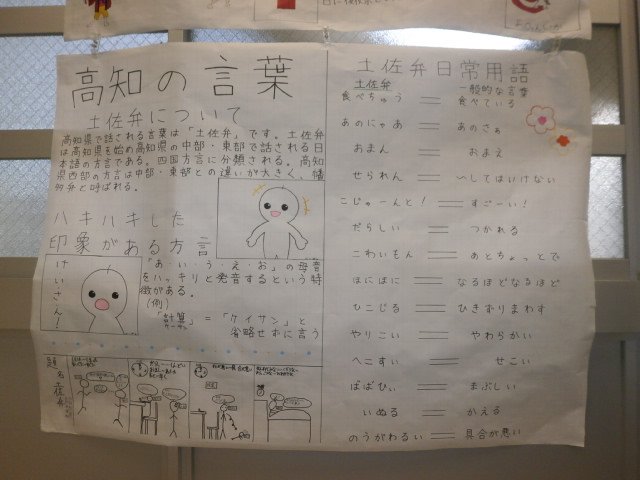 高知の言葉
土佐弁について
高知県で話される言葉は「土佐弁」です。土佐弁
は高知県を始め高知県の中部・東部で話される日
本語の方言である。四国方言に分類される。高知
県西部の方言は中部・東部との違いが大きく、幡
多弁と呼ばれる。
ハキハキした
印象がある方言
「あ・い・う・え・お」の母音
をハッキリと発音するという特
徴がある。
(例)
「計算」=「ケイサン」と
省略せずに言う
けいさん!
題名 土佐弁
土佐弁日常用語
土佐弁 一般的な言葉
食べちゅう = 食べている
あのにゃあ = あのさぁ
おまん = おまえ
せられん = ~してはいけない
こじゃーんと! = すごーい!
だらしい = つかれる
こわいもん = あとちょっとで
ほにほに = なるほどなるほど
ひこじる = ひきずりまわす
やりこい = やわらかい
へこすい = せこい
ばばひぃ = まぶしい
いぬる = かえる
のうがわるい = 具合が悪い